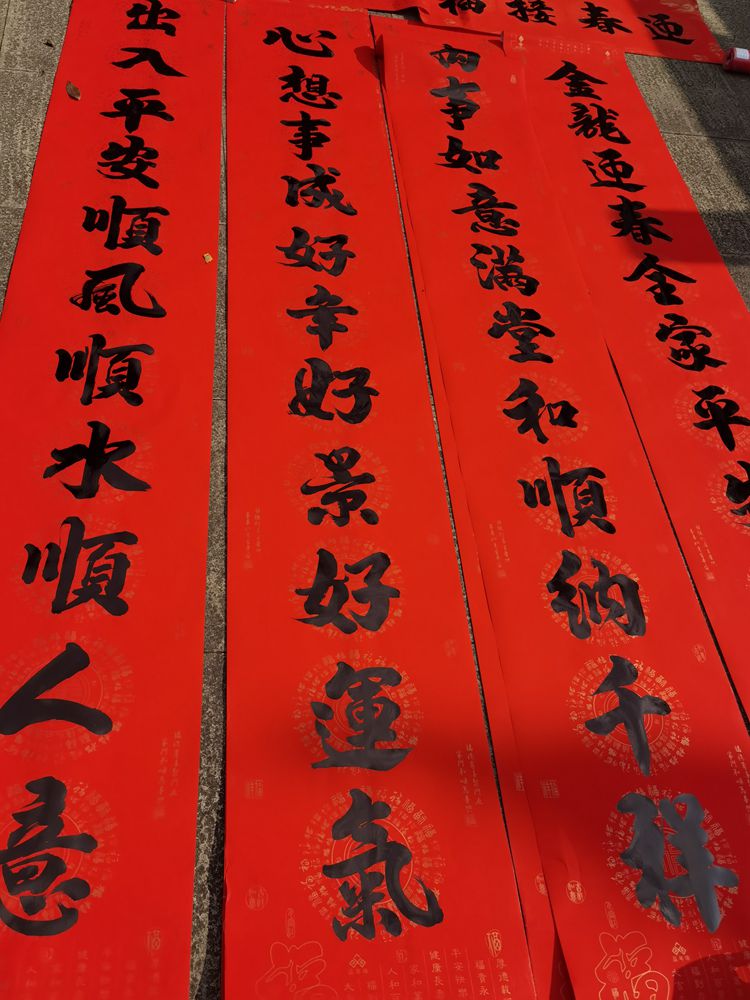 迎春接福
金龍迎春全家平安
百事如意滿堂和順納千祥
心想事成好年好景好運氣
出入平安順風順水順人意